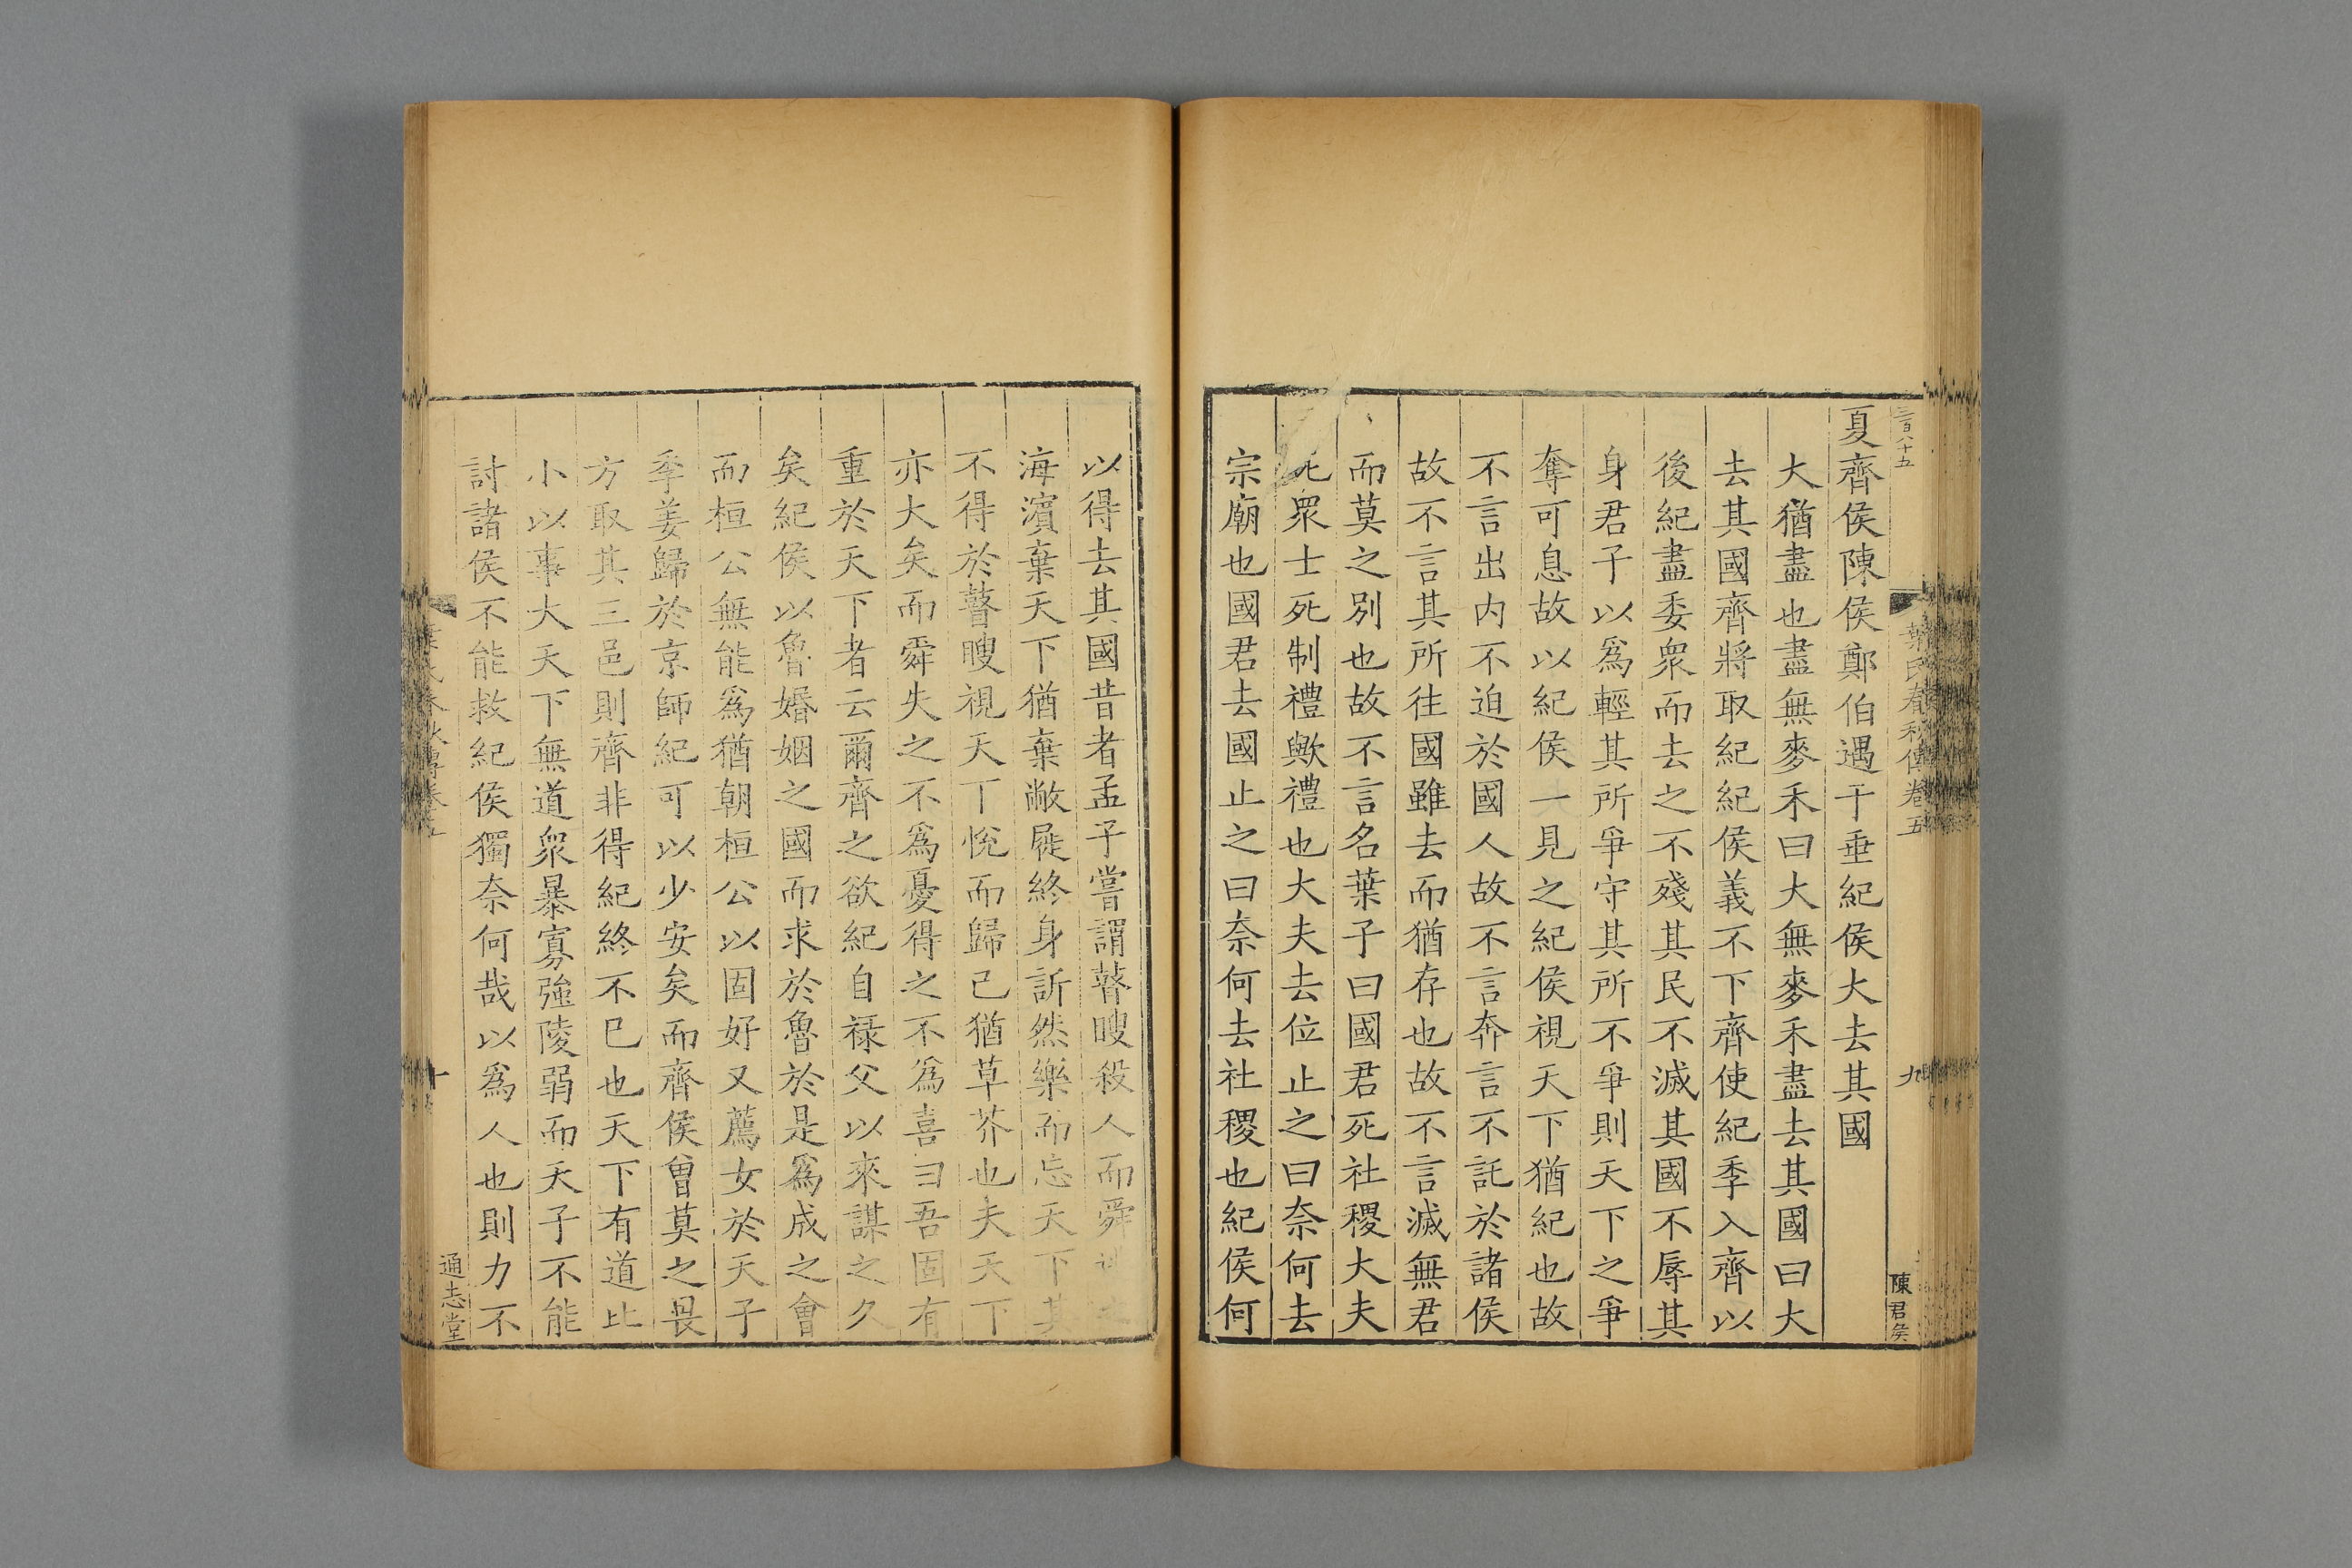 三百八十五
葉氏春秋傳卷五
九
陳君侯
夏齊侯陳侯鄭伯遇于垂紀侯大去其國
大猶盡也盡無麥禾曰大無麥禾盡去其國曰大
去其國齊將取紀紀侯義不下齊使紀季入齊以
後紀盡委衆而去之不殘其民不滅其國不辱其
身君子以爲輕其所爭守其所不爭則天下之爭
奪可息故以紀侯一見之紀侯視天下猶紀也故
不言出内不迫於國人故不言奔言不託於諸侯
故不言其所往國雖去而猶存也故不言滅無君
而莫之別也故不言名葉子曰國君死社稷大夫
死衆士死制禮歟禮也大夫去位止之曰奈何去
宗廟也國君去國止之曰奈何去社稷也紀侯何
以得去其國昔者孟子嘗謂瞽瞍殺人而舜
海濵棄天下猶棄敝屣終身訢然樂而忘天下其
不得於瞽瞍視天丁悅而歸己猶草芥也夫天下
亦大矣而舜失之不爲憂得之不爲喜曰吾固有
重於天下者云爾齊之欲紀自祿父以來謀之久
矣紀侯以魯婚姻之國而求於魯於是爲成之會
而桓公無能爲猶朝桓公以固好又薦女於天子
季姜歸於京師紀可以少安矣而齊侯曾莫之畏
方取其三邑則齊非得紀終不巳也天下有道比
小以事大天下無道衆暴寡強陵弱而天子不能
討諸侯不能救紀侯獨奈何哉以爲人也則力不
葉氏春秋傳卷五
十
通志堂